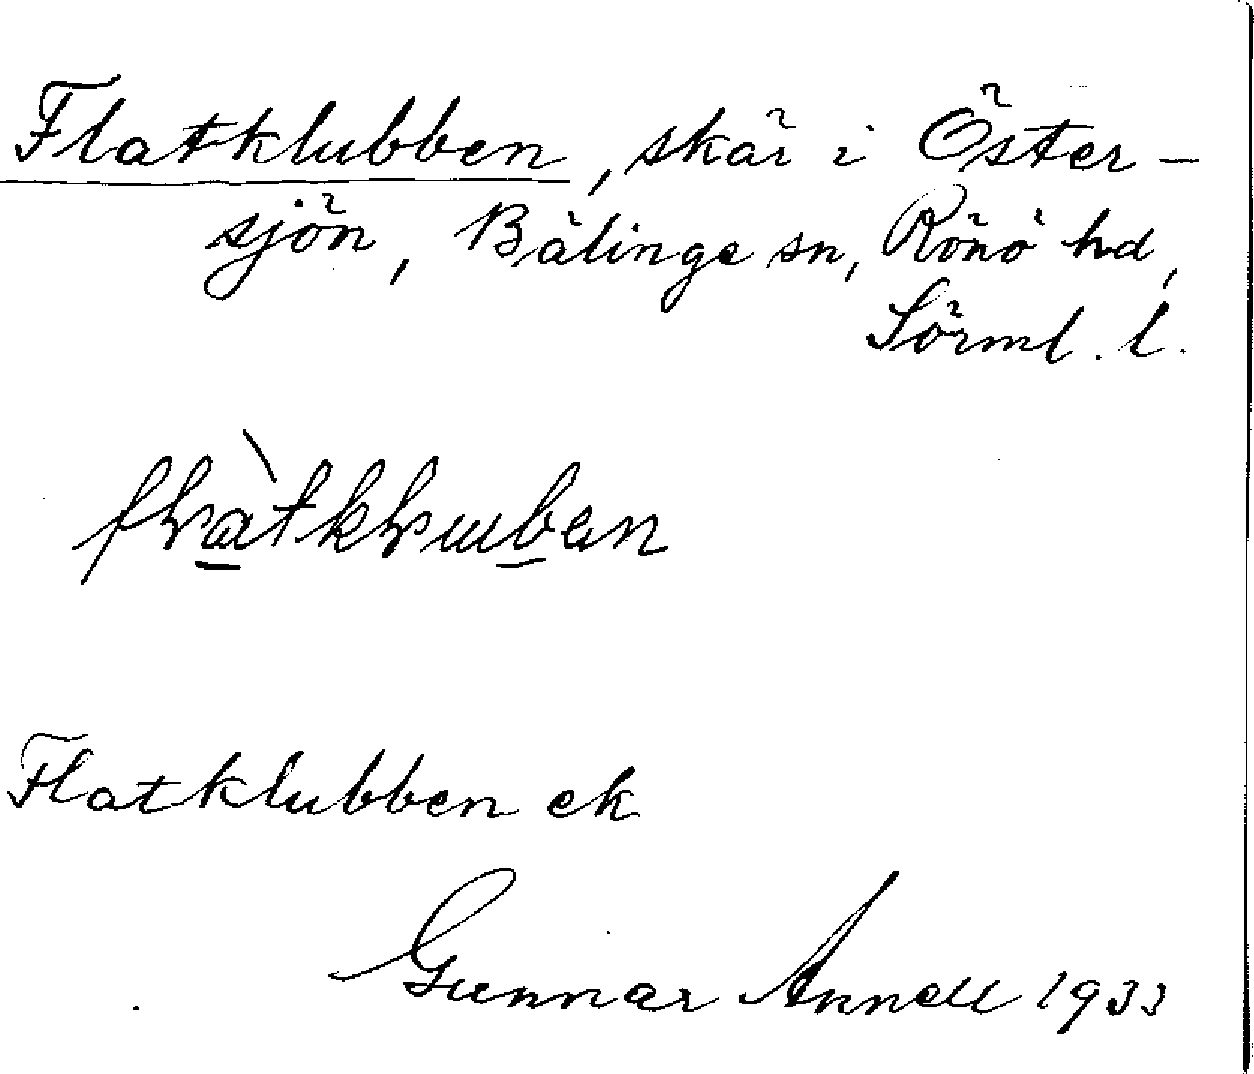 Flatklubben, skär i Öster-
sjön, Bälinge sn, Rönö hd,
Sörml. l.
Flatklubben ek
Gunnar Annell 1933